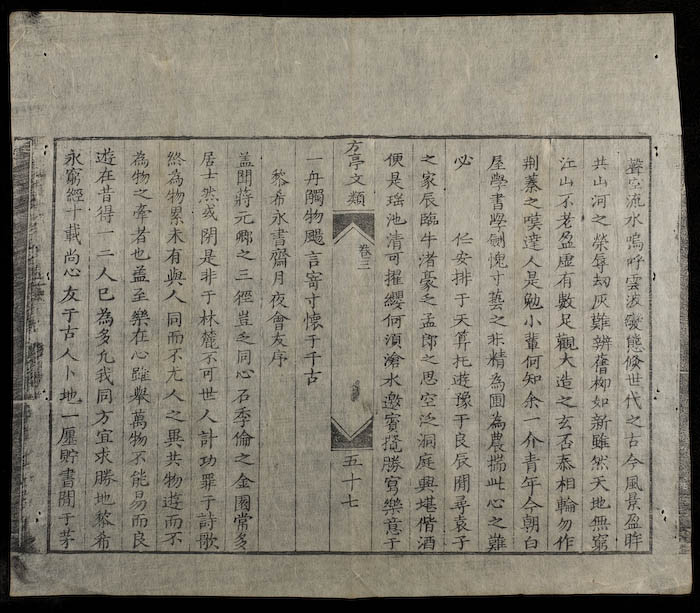 聲空流水嗚呼雲波變態倏世代之古今風景盈眸
共山河之榮辱劫灰難辨舊柳如新雖然天地無窮
江山不老盈虛有數足觀大造之玄否泰相輪勿作
荆蓁之嘆達人是勉小輩何知余一介青年今朝白
屋學書學劍愧寸藝之非精為圃為農揣此心之難
必 仁安排于天算托遊豫于良辰閒尋袁子
之家辰臨牛渚豪之孟郎之思空泛洞庭興堪偕酒
便是瑶池清可擢纓何須滄水邀賓攬勝寫樂意于
方亭文類
卷三
五十七
一舟觸物颺言寄寸懷于千古
黎希永書齋月夜會友序
盖聞蔣元卿之三徑豈乏同心石季倫之金園常多
居士然或閉是非于林麓不可世人計功罪于詩歌
終為物累未有與人同而不尤人之異共物遊而不
為物之牽者也盖至樂在心雖舉萬物不能易而良
遊在昔得一二人已為多允我同方宜求勝地黎希
永窮經十載尚心友于古人卜地一廛貯書閒于茅